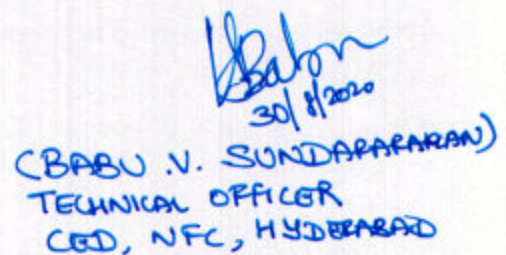 Babu
30/8/2020
(BABU .V. SUNDARARARAN)
TECHNICAL OFFICER
CED, NFC, HYDERABAD